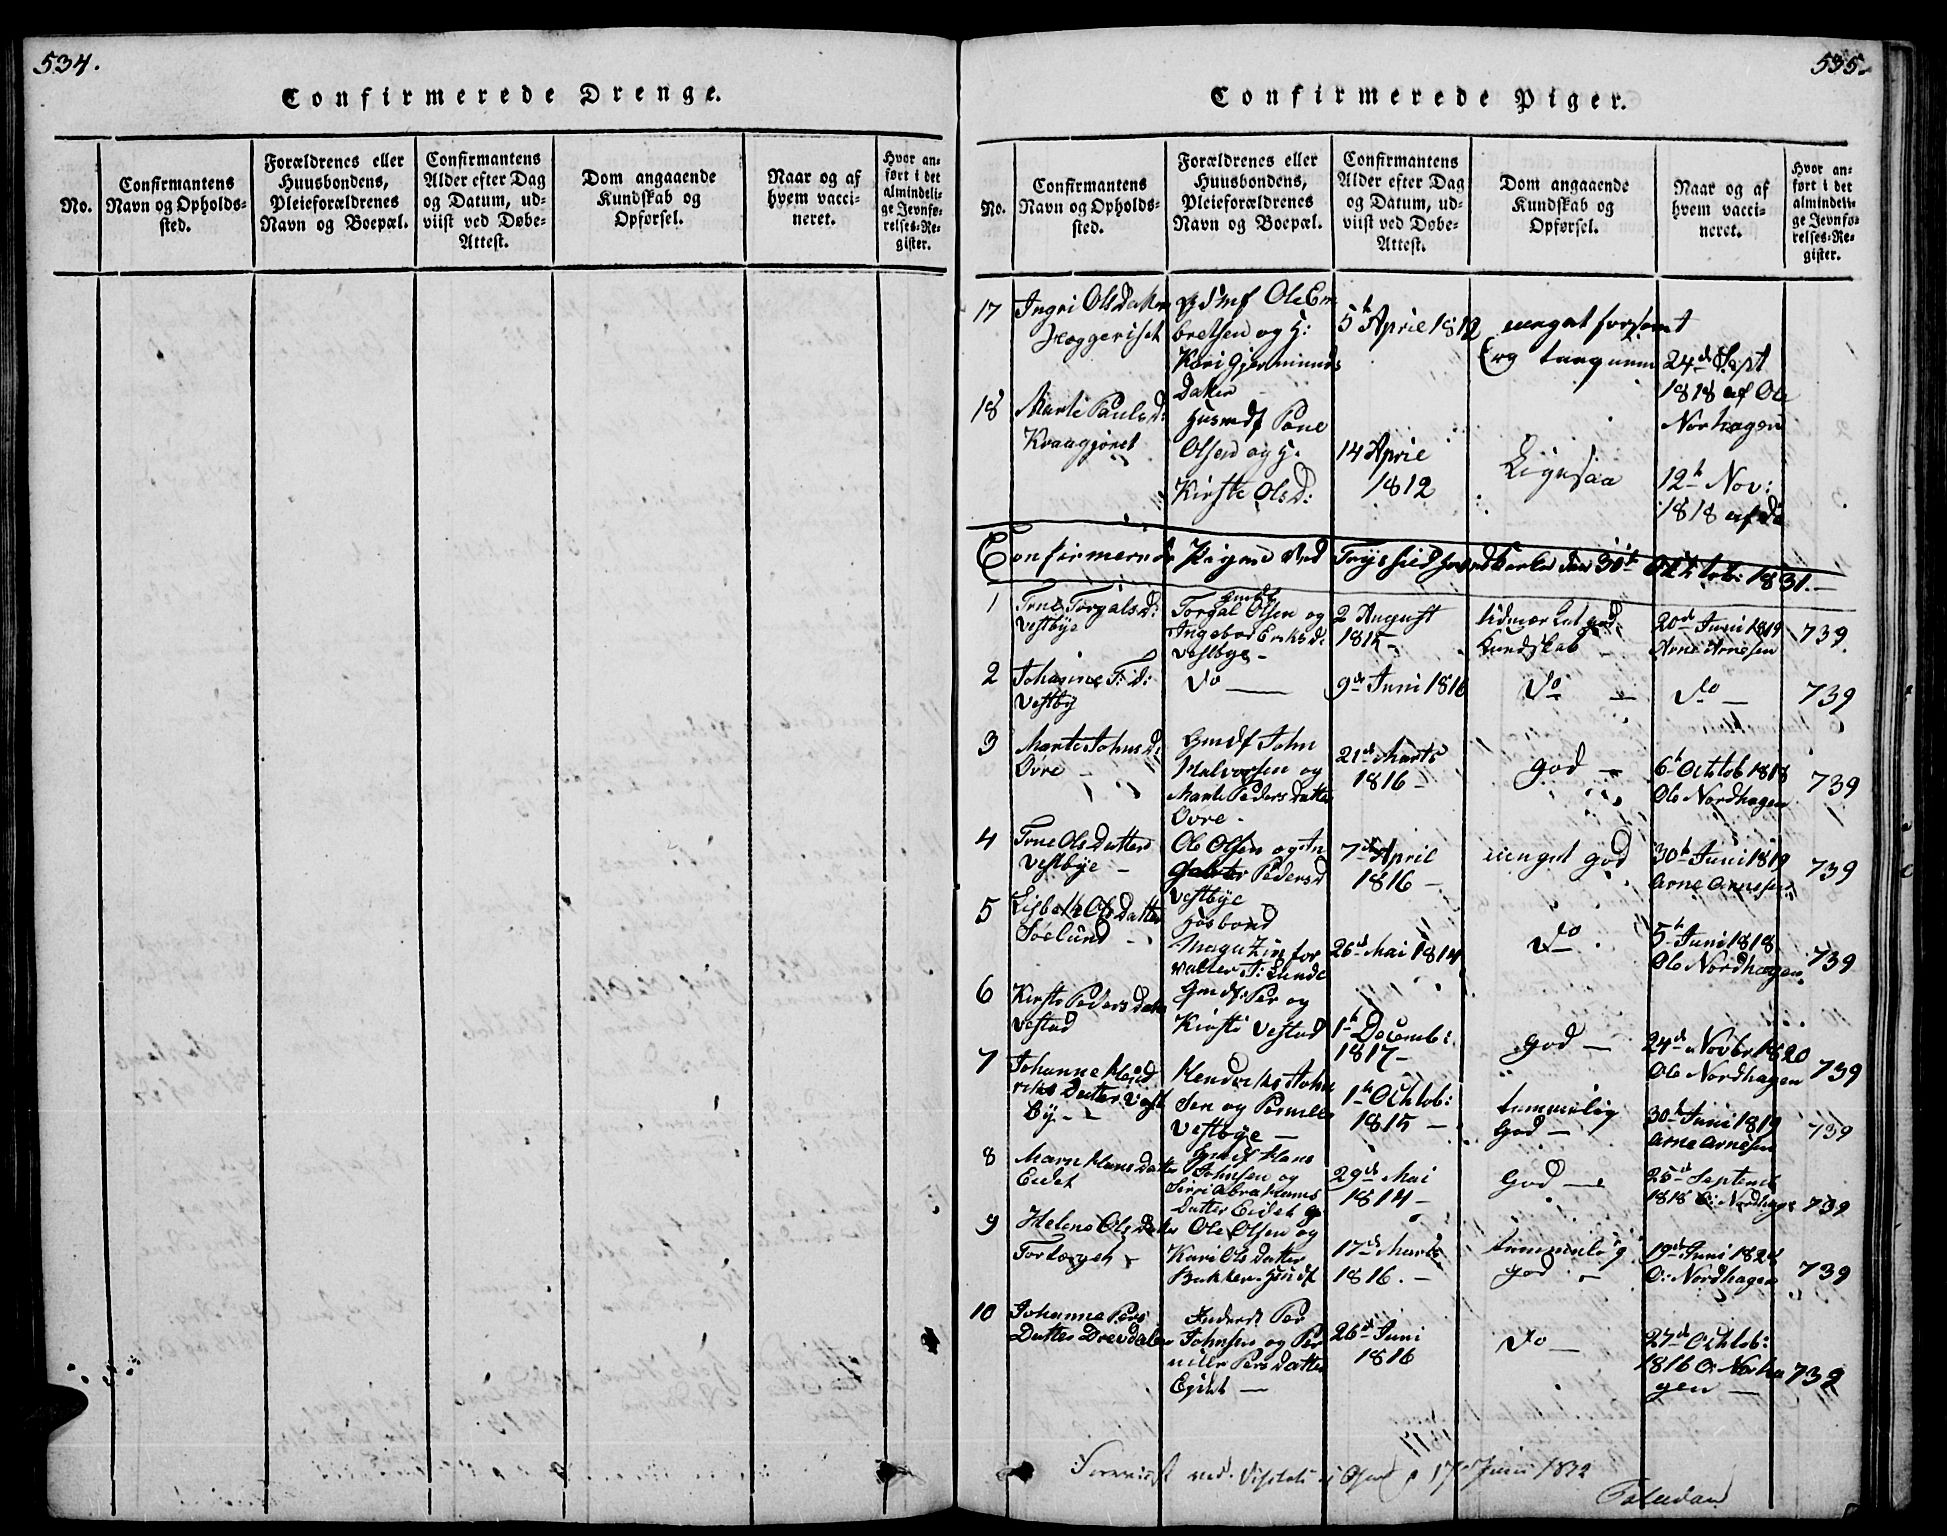 534.
Confirmerede Drenge.
No.
Confirmantens
Navn og Opholds-
sted.
Forældrenes eller
Huusbondens,
Pleieforældrenes
Navn og Boepæl.
Confirmantens
Alder efter Dag
og Datum, ud-
viist ved Døbe-
Attest.
Dom angaaende
Kundskab og
Opførsel.
Naar og af
hvem vacci-
neret.
Hvor an-
ført i det
almindeli-
ge Jevnfø-
relses-Re-
gister.
535.
Confirmerede Piger.
No.
Confirmantens
Navn og Opholds-
sted.
Forældrenes eller
Huusbondens,
Pleieforældrenes
Navn og Boepæl.
Confirmantens
Alder efter Dag
og Datum, ud-
viist ved Døbe-
Attest.
Dom angaaende
Kundskab og
Opførsel.
Naar og af
hvem vacci-
neret.
Hvor an-
ført i det
almindeli-
ge Jevnfø-
relses-Re-
gister.
17
Ingri Olsdatter
Heggeriset
Ole Em
bretsen og H:
Kari Gjermunds
Datter
5t April 1812
meget forsømt
og
24d Sept
1818 af Ole
Norhagen
18
Marte Paulsd:
Kraagjøret
Husmdf Poue
Olsen og H.
Kirste Olsd:
14 April
1812
Ligesaa
12t Nov:
1818 af do
Confirmerede Pigene ved Trysild hovedkirke den 30t Octob: 1831.-
1
Trne Torgalsd:
Vestbye
Gmdf
Torgal Olsen og
Ingebor Eriksd:
Vestbye -
2 August
1815 -
Udmærket god
Kundskab
20d Juni 1819
Arne Arnesen
739.
2
Johanne T: d:
Vestby
Do
9d Juni 1816
Do -
Do -
739
3
Marte Johnsd:
Øvre -
Gmdf John
Halvorsen og
Marte Pedersdatter
Øvre -
21d Marts
1816 -
god -
6t Octob 1818
Ole Nordhagen
739
4
Trne Olsdatter
Vestbye -
Ole Olsen og
Pedersd
Vestbye
7d April
1816 -
meget god
30t Juni 1819
Arne Arnesen
739
5
Lisbeth Olsdatter
Søelund -
Hosbond
Magazinfor
valter T: Lunde
26d Mai 1814
Do -
5t Juni 1818
Ole Nordhagen
739
6
Kirste Pedersdatter
Vestad
Gmdf: Per og
Kirsti Vestad
1t Decemb:
1817 -
god -
24d Novbr 1820
Ole Nordhagen
739
7
Johanne Hend
riks Datter Vest
by -
Henderik John
sen og Pernille
Vestbye -
1t Octob:
1815 -
temmelig
god -
30t Juni 1819
Arne Arnesen
739
8
Maren Hansdatter
Eidet
Gmdf Hans
Johnsen og
Sirri Abrahams
datter Eidet
29d Mai
1814 -
god -
25d Septemb
1818 O: Nordhage
739
9
Helene Olsdatter
Torberget -
Ole Olsen og
Kari Olsdatter
Bakken Gmdf
17d Marts
1816. -
temmelig
god -
19d Juni
O: Nordhagen
739
10
Johanne Pers
Datter Drevdalen
Inderst Per
Johnsen og Per
nille Persdatter
26d Juni
1816
Do -
27d Octob:
1816 O: Norha
gen -
739
ved Visitats i 17 Juni 1832